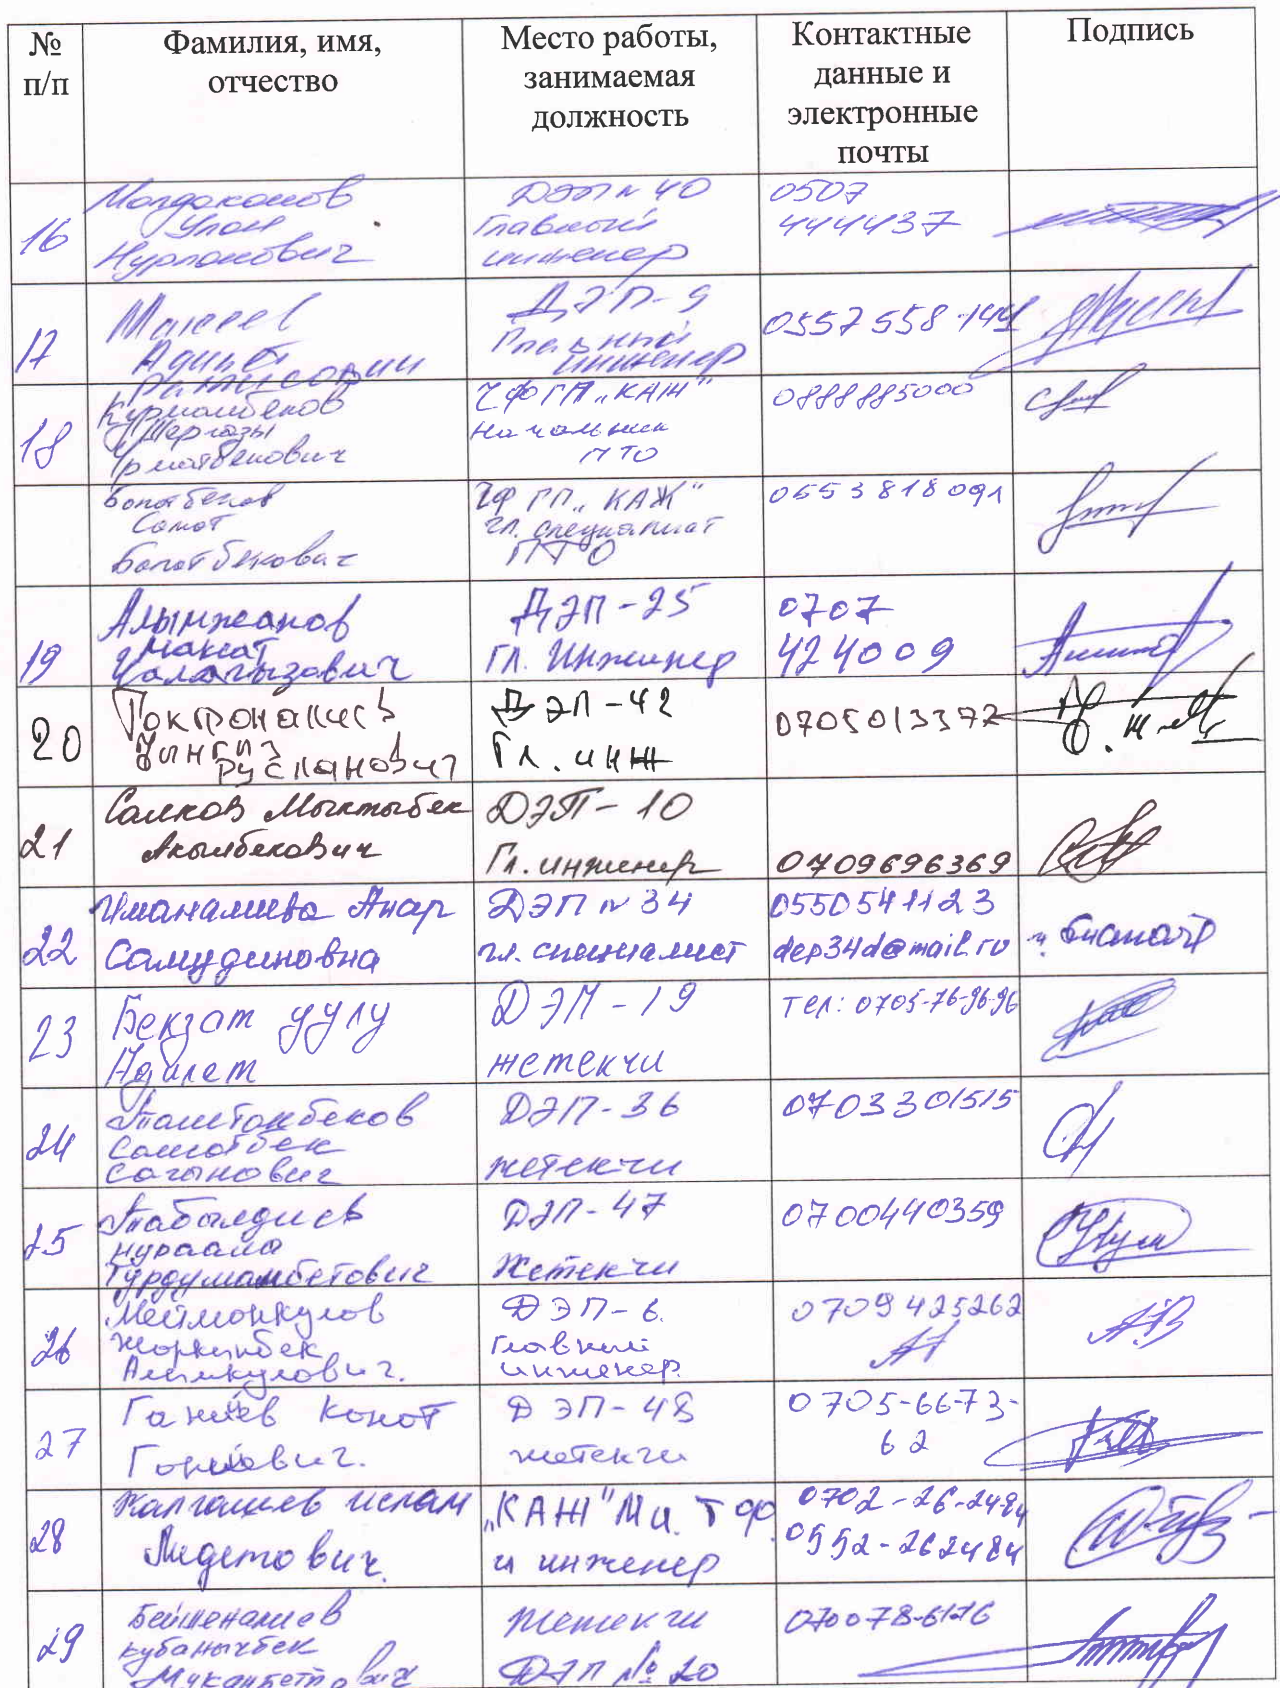 № п/п
Фамилия, имя, отчество
Место работы, занимаемая должность
Контактные данные и электронные почты
Подпись
16
Молдоканов
Улан
Нурланович
ДЭП № 40
Главный
инженер
0507
444437
17
Адилет
ДЭП-9
Главный
инженер
0557558-144
18
Курманбеков
Шергазы
Урматбекович
ЧФ ГП „КАЖ"
Начальник
ПТО
0888885000
Болотбеков
Самат
Болотбекович
ЧФ ГП „КАЖ"
гл. специалист
ПТО
0553818091
19
Алынжанов
Максат
ДЭП-25
Гл. Инженер
0707
424009
20
Токтоналиев
Чынгиз
Русланович
ДЭП-42
Гл. инж
0705013372
21
Салков Мыктыбек
Акылбекович
ДЭП-10
Гл. инженер
0709696369
22
Иманалиева Анар
Самудиновна
ДЭП № 34
гл. специалист
0550541123
dep34d@mail.ru
23
Бекзат уулу
Адилет
ДЭП-19
жетекчи
тел: 0705-76-96-96
24
Таштанбеков
Саматбек
Сагынович
ДЭП-36
жетекчи
0703301515
25
Табылдиев
Нураалы
Турдумамбетович
ДЭП-47
Жетекчи
0700440359
26
Мейманкулов
Жоркинбек
Алымкулович.
ДЭП-6.
Главный
инженер.
0709425262
27
Ганиев Конот
Гониевич.
ДЭП-48
жетекчи
0705-6673-
62
28
Калгашев Ислам
„КАЖ" Ми. Тфр.
и инженер
0702-26-2484
0552-262484
29
Бейшеналиев
Кубанычбек
Муканбетович
Жетекчи
ДЭП № 20
070078-6176